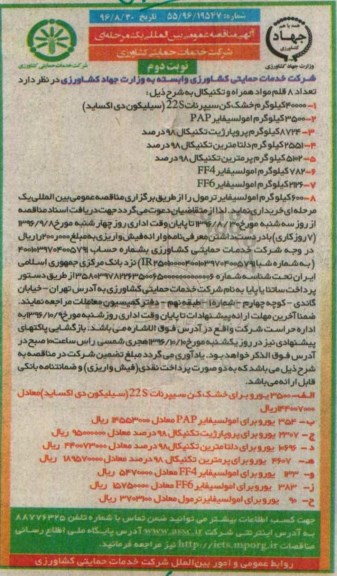 شماره: ۵۵/۹۶/۱۹۵۲۷ تاریخ ۹۶/۸/۲۰
آگهی مناقصه عمومی بین المللی یک مرحله ای
شرکت خدمات حمایتی کشاورزی
نوبت دوم
جهاد
وزارت جهاد کشاورزی
شرکت خدمات حمایتی کشاورزی
شرکت خدمات حمایتی کشاورزی وابسته به وزارت جهاد کشاورزی در نظر دارد
تعداد ۸ قلم مواد همراه و تکنیکال به شرح ذیل:
۱- ۴۰۰۰۰ کیلوگرم خشک کن سیپرنات 22S (سیلیکون دی اکساید)
۲- ۳۵۰۰ کیلوگرم امولسیفایر PAP
۳- ۸۷۲۳ کیلوگرم پروپارژیت تکنیکال ۹۸ درصد
۴- ۲۵۵۱ کیلوگرم دلتا مترین تکنیکال ۹۸ درصد
۵- ۵۲۰۲ کیلوگرم پرمترین تکنیکال ۹۸ درصد
۶- ۷۸۲ کیلوگرم امولسیفایر FF4
۷- ۲۲۶ کیلوگرم امولسیفایر FF6
۸- ۶۰۰ کیلوگرم امولسیفایر ترمول را از طریق برگزاری مناقصه عمومی بین المللی یک
مرحله ای خریداری نماید. لذا از متقاضیان دعوت می گردد جهت دریافت اسناد مناقصه
از روز سه شنبه مورخ ۱۳۹۶/۸/۳۰ تا پایان وقت اداری روز چهارشنبه مورخ ۱۳۹۶/۹/۸
(۷ روز کاری) با در دست داشتن معرفی نامه و ارائه فیش واریزی به مبلغ ریال
در وجه شرکت خدمات حمایتی کشاورزی بشماره حساب
نزد بانک مرکزی جمهوری اسلامی
ایران تحت شناسه شماره از طریق دستور
پرداخت ساتنا یا پایا به نام شرکت خدمات حمایتی کشاورزی به آدرس تهران - خیابان
گاندی - کوچه چهارم - شماره - طبقه نهم - دفتر کمیسیون معاملات مراجعه نمایند.
ضمنا آخرین مهلت ارائه پیشنهادات تا پایان وقت اداری روز شنبه مورخ به
اداره حراست شرکت واقع در آدرس فوق الاشاره می باشد. بازگشایی پاکتهای
پیشنهادی نیز در روز یکشنبه مورخ هجری شمسی راس ساعت ۱۰ صبح در
آدرس فوق الذکر خواهد بود. یادآوری می گردد مبلغ تضمین شرکت در مناقصه به
شرح ذیل می باشد که به دو صورت پرداخت نقدی (فیش واریزی) و ضمانتنامه بانکی
قابل ارائه می باشد.
الف- ۳۵۰۰ یورو برای خشک کن سیپرنات 22S (سیلیکون دی اکساید) معادل
ریال
ب- ۳۵۴ یورو برای امولسیفایر PAP معادل ۱۴۵۵۳۰۰۰ ریال
ج- ۲۳۰۷ یورو برای پروپارژیت تکنیکال ۹۸ درصد معادل ۹۵۰۰۰۰۰۰ ریال
د- یورو برای دلتا مترین تکنیکال ۹۸ درصد معادل ریال
ه- ۴۶۰۷ یورو برای پرمترین تکنیکال ۹۸ درصد معادل ۱۸۹۵۷۰۰۰۰ ریال
و- ۱۳۳ یورو برای امولسیفایر FF4 معادل ۵۴۷۰۰۰۰ ریال
ز- ۳۸۳ یورو برای امولسیفایر FF6 معادل ۱۵۷۵۰۰۰۰ ریال
ح- ۹۰ یورو برای امولسیفایر ترمول معادل ۳۷۰۳۱۰۰ ریال
جهت کسب اطلاعات بیشتر می توانید ضمن تماس با شماره تلفن ۸۸۷۷۶۳۲۵
به آدرس اینترنتی شرکت www.assc.ir آدرس پایگاه ملی اطلاع رسانی
مناقصات http://iets.mporg.ir نیز مراجعه فرمائید.
روابط عمومی و امور بین الملل شرکت خدمات حمایتی کشاورزی